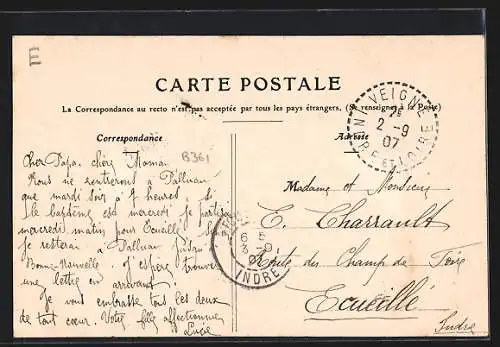 CARTE POSTALE
La Correspondance au recto n'est pas acceptée par tous les pays étrangers. (Se renseigner à la Poste)
Correspondance
Adresse
B361
VEIGNÉ
2 -9
07
INDRE ET LOIRE
Cher Papa, chère Maman
Nous ne rentrerons à Palluau
que mardi soir à 7 heures. Si
le baptême est mercredi je partirai
mercredi matin pour Ecueillé. Sinon
je resterai à Palluau jusqu'
Bonne Nouvelle. J'espère trouver
une lettre en arrivant.
Je vous embrasse tous les deux
de tout cœur. Votre fille affectionnée
Lucie
6 5
3 -9
07
INDRE
Madame et Monsieur
E. Charrault
Route des Champ de Foire
Ecueillé
Indre